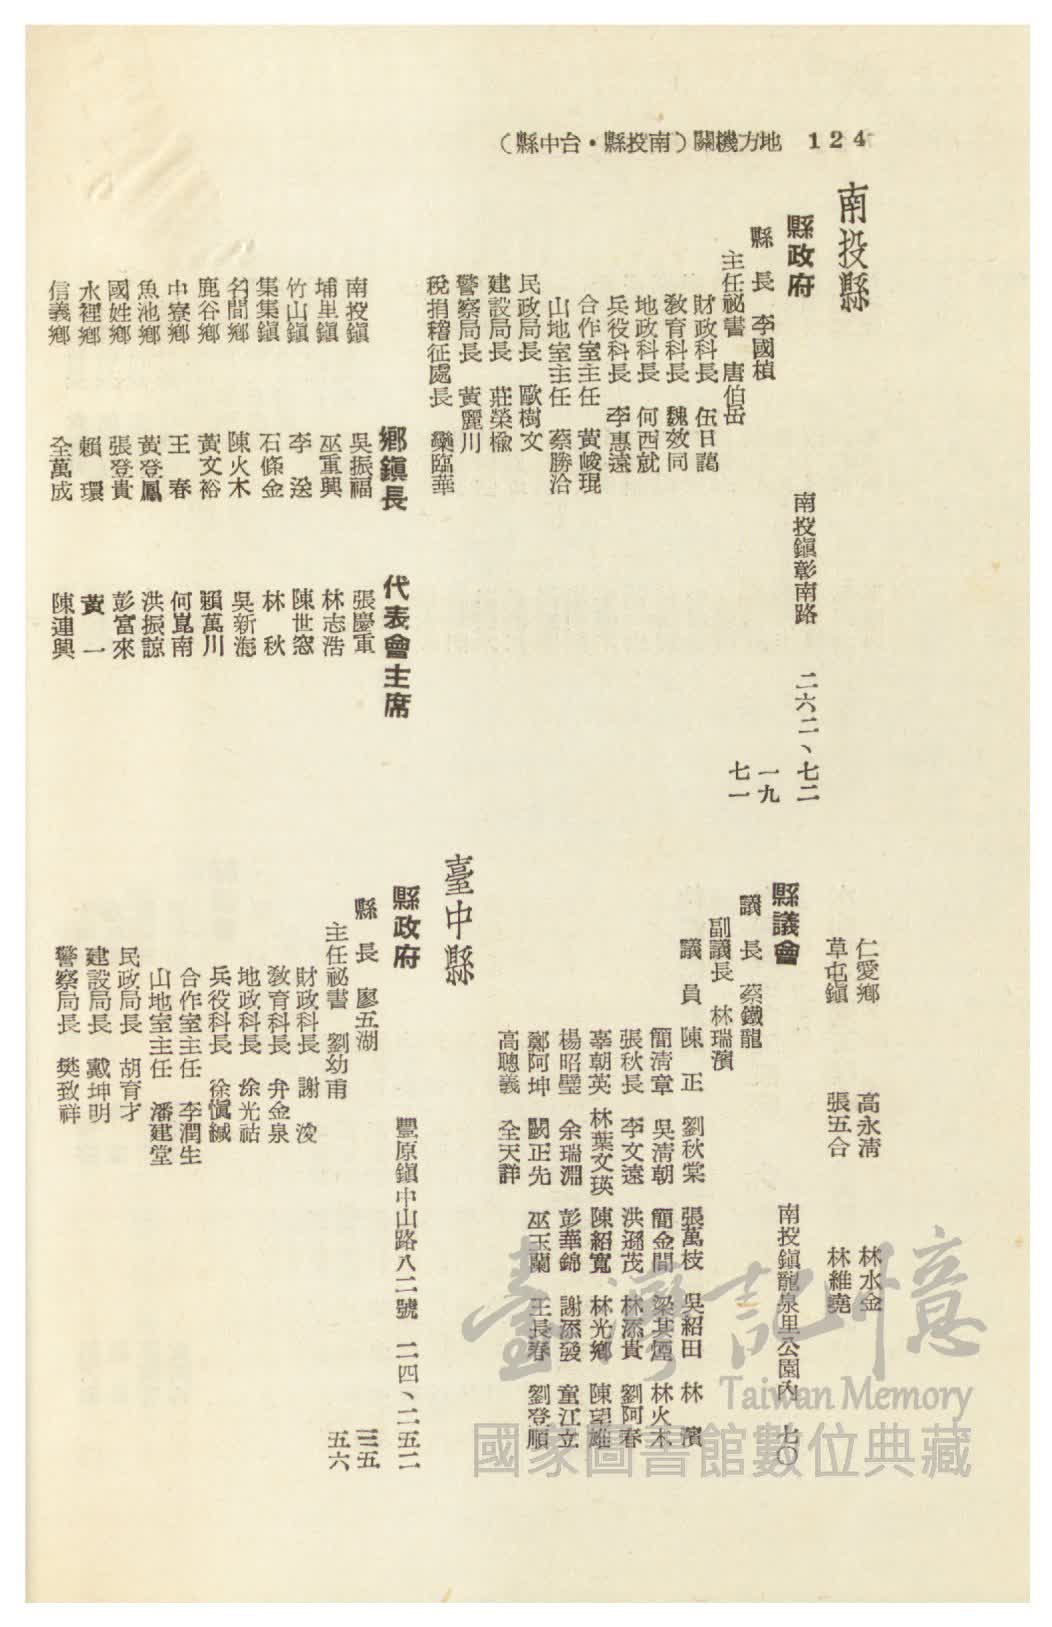 124 地方機關（南投縣・台中縣）
南投縣
縣政府 南投鎭彰南路 二六二、七二
縣長 李國楨 一九
主任祕書 唐伯岳 七一
財政科長 伍日藹
敎育科長 魏效同
地政科長 何西就
兵役科長 李惠遠
合作室主任 黃峻琨
山地室主任 蔡勝洽
民政局長 歐樹文
建設局長 莊榮楡
警察局長 黃麗川
稅捐稽征處長 欒臨華
鄉鎭長 代表會主席
南投鎭 吳振福 張慶重
埔里鎭 巫重興 林志浩
竹山鎭 李送 陳世窓
集集鎭 石條金 林秋
名間鄉 陳火木 吳新海
鹿谷鄉 黃文裕 賴萬川
中寮鄉 王春 何崑南
魚池鄉 黃登鳳 洪振諒
國姓鄉 張登貴 彭富來
水裡鄉 賴環 黃一
信義鄉 全萬成 陳連興
仁愛鄉 高永淸 林水金
草屯鎭 張五合 林維堯
縣議會 南投鎭龍泉里公園內 七〇
議長 蔡鐵龍
副議長 林瑞濱
議員 陳正 劉秋棠 張萬枝 吳紹田 林濱
簡淸章 吳淸朝 簡金間 梁其煙 林火木
張秋長 李文遠 洪遜茂 林添貴 劉阿春
辜朝英 林葉文瑛 陳紹寬 林光鄉 陳望雄
楊昭璧 余瑞淵 彭華錦 謝添發 童江立
鄭阿坤 闕正先 巫玉蘭 王長春 劉登順
高聰義 全天詳
臺中縣
縣政府 豐原鎭中山路八二號 二四、二五二
縣長 廖五湖 三五
主任祕書 劉幼甫 五六
財政科長 謝浚
敎育科長 弁金泉
地政科長 徐光祐
兵役科長 徐愼緘
合作室主任 李潤生
山地室主任 潘建堂
民政局長 胡育才
建設局長 戴坤明
警察局長 樊致祥
臺灣記憶
Taiwan Memory
國家圖書館數位典藏